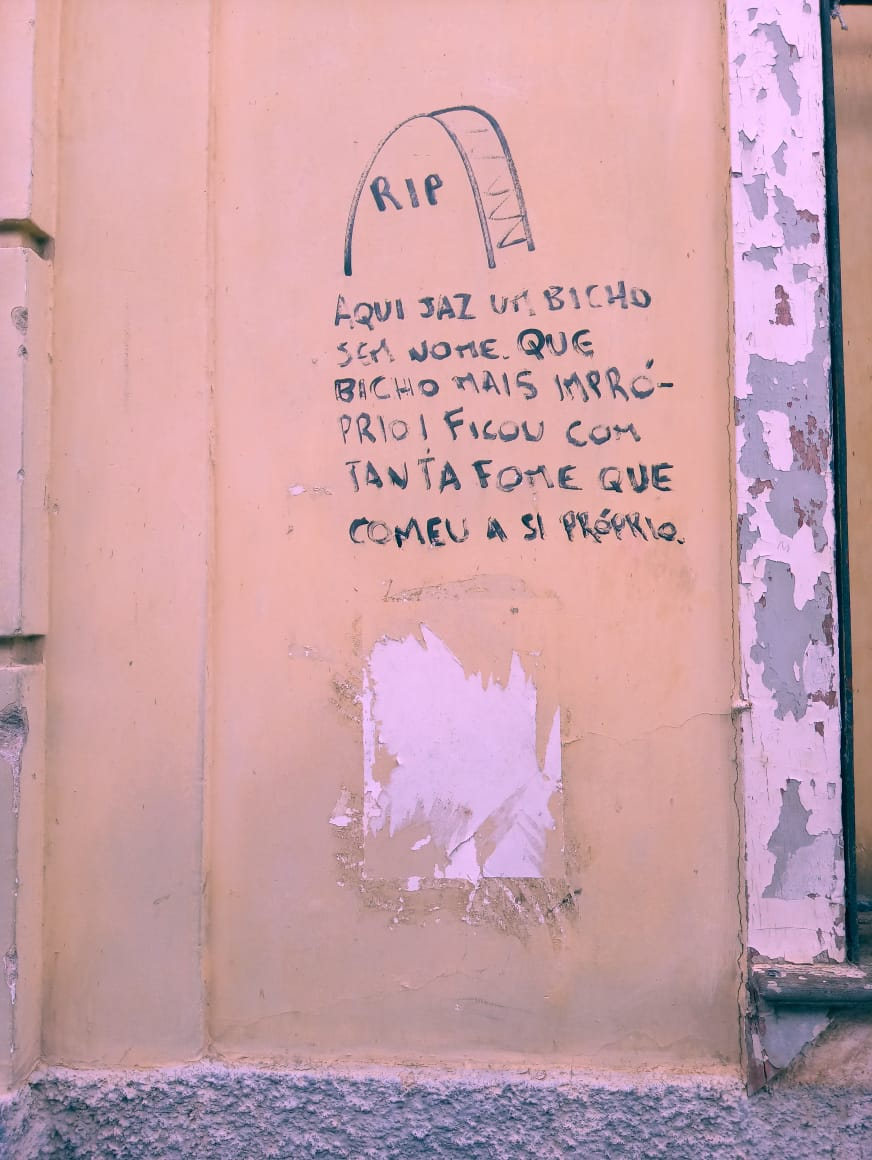 RIP
AQUI JAZ UM BICHO
SEM NOME. QUE
BICHO MAIS IMPRÓ-
PRIO! FICOU COM
TANTA FOME QUE
COMEU A SI PRÓPRIO.